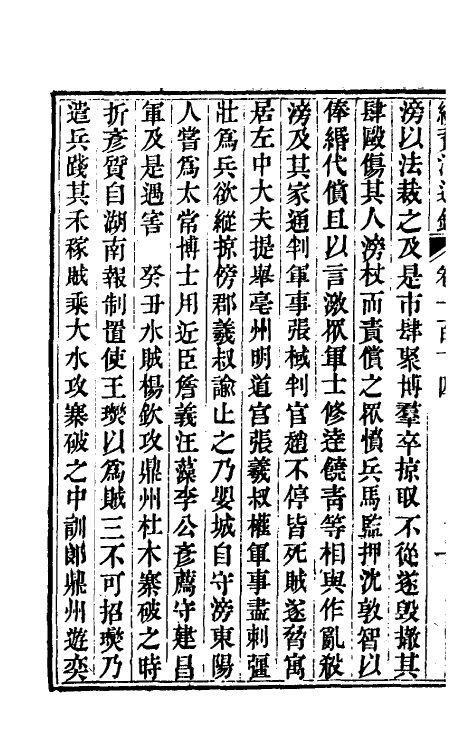 續資治通鑑 卷一百十四
滂以法裁之及是市肆聚博羣卒掠取不從遂毀撤其
肆毆傷其人滂杖而責償之眾憤兵馬監押沈敦智以
俸緡代償且以言激眾軍士修達饒青等相與作亂殺
滂及其家通判軍事張棫判官趙不停皆死賊遂脅寓
居左中大夫提舉亳州明道宮張羲叔權軍事盡刺彊
壯為兵欲縱掠傍郡羲叔諭止之乃嬰城自守滂東陽
人嘗為太常博士用近臣詹義汪藻李公彥薦守建昌
軍及是遇害 癸丑水賊楊欽攻鼎州杜木寨破之時
折彥質自湖南報制置使王𤫉以為賊三不可招𤫉乃
遣兵踐其禾稼賊乘大水攻寨破之中訓郎鼎州遊奕